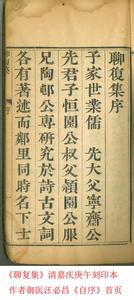 聊復集序
予家世業儒　先大父寧齋公
先君子恒園公叔父潁園公服
兄陶邨公專研究於詩古文詞
各有著述而鄰里同時名下士
《聊复集》清嘉庆庚午刻印本
作者御医汪必昌《自序》首页